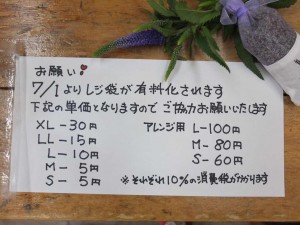 お願い
7/1よりレジ袋が有料化されます
下記の単価となりますのでご協力お願いいたします
XL-30円
LL-15円
L-10円
M-5円
S-5円
アレンジ用 L-100円
M-80円
S-60円
※それぞれ10%の消費税がかかります